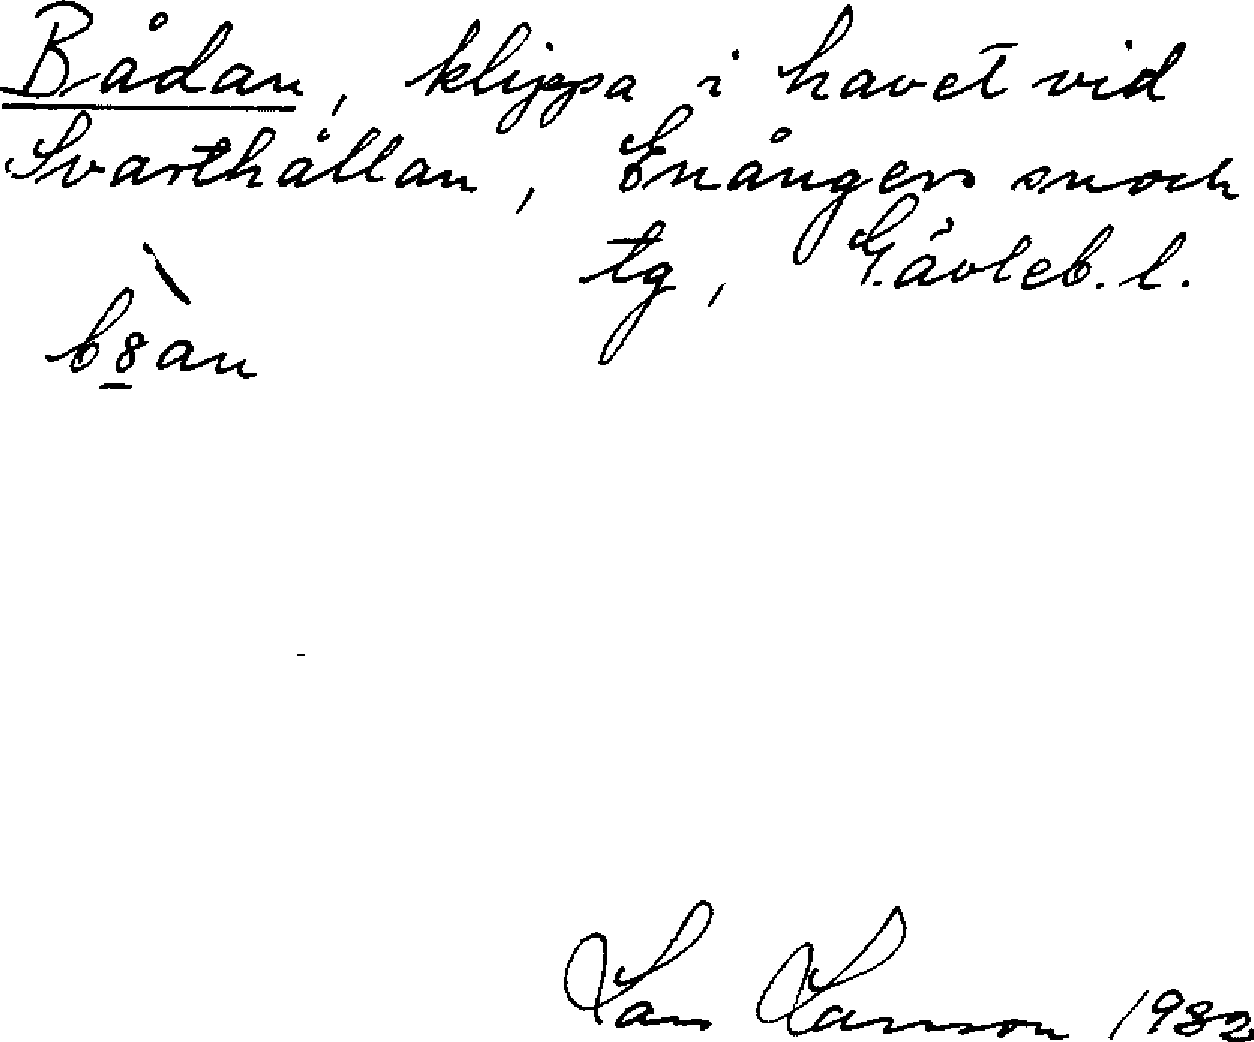 Bådan, klippa i havet vid
Svarthällan, Enångers sn och
tg, Gävleb. l.
b8an
Lars Larsson 1982